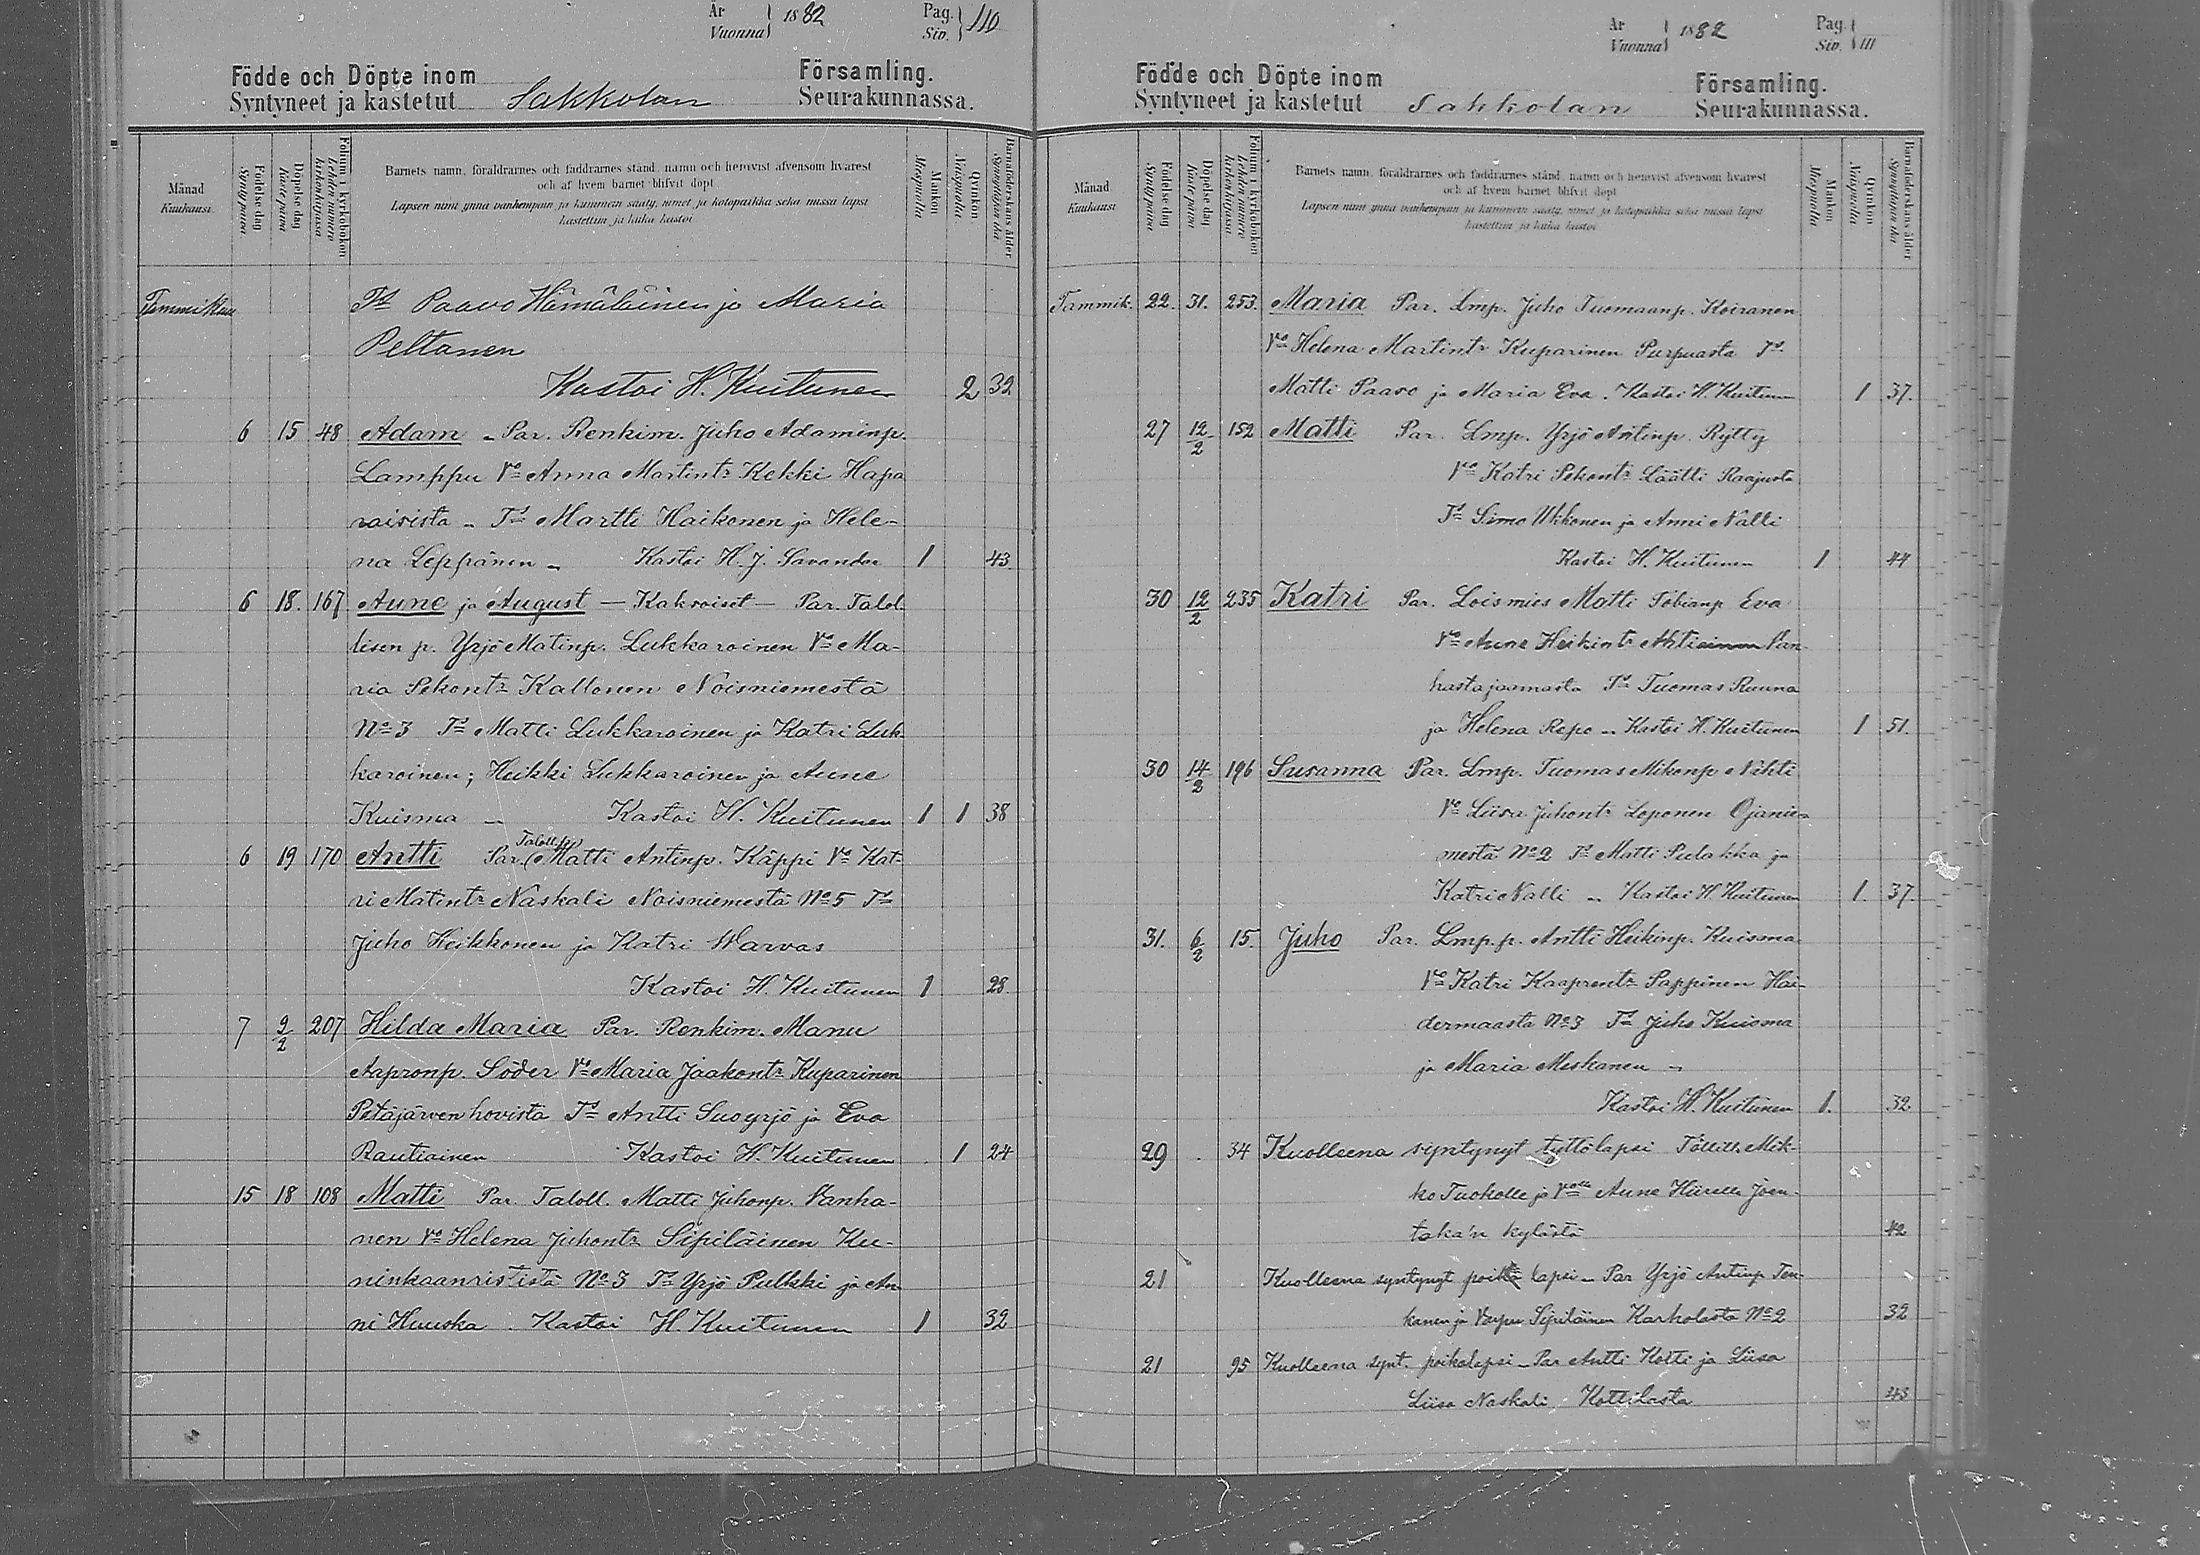 År Vuonna 1882 Pag. Siv. 110
Födde och Döpte inom Församling.
Syntyneet ja kastetut Sakkolan Seurakunnassa.
Månad Kuukausi
Födelse dag Syntypäivä
Döpelse dag Kastepäivä
Folium i kyrkoboken Lehden numero kirkonkirjassa
Barnets namn, föräldrarnes och faddrarnes stånd, namn och hemvist äfvensom hvarest
och af hvem barnet blifvit döpt
Lapsen nimi ynnä vanhempain ja kummein sääty, nimet ja kotopaikka sekä missä lapsi
kastettiin ja kuka kastoi
Mankön Miespuolia
Qvinkön Naispuolia
Barnaföderskans ålder Synnyttäjän ikä
Tammikuu Td Paavo Hämäläinen ja Maria
Peltanen
Kastoi H. Kuitunen 2 32
6 15 48 Adam - Par. Renkim. Juho Adaminp.
Lamppu Vo Anna Martintr Kekki Hapa
raisista - Td Martti Haikonen ja Hele-
na Leppänen - Kastoi H. J. Savander 1 43
6 18. 167 Aune ja August - Kaksoiset - Par. Talol.
lisen p. Yrjö Matinp. Lukkaroinen Vo Ma-
ria Pekontr Kallonen Noisniemestä
No 3 Td Matti Lukkaroinen ja Katri Luk
karoinen; Heikki Lukkaroinen ja Aune
Kuisma - Kastoi H. Kuitunen 1 1 38
6 19 170 Antti Par. Taloll. p. Matti Antinp. Käppi Vo Kat-
ri Matintr Naskali Noisniemestä No 5 Td
Juho Heikkonen ja Katri Warvas
Kastoi H. Kuitunen 1 28.
7 9/2 207 Hilda Maria Par. Renkim. Manu
Aapronp. Söder Vo Maria Jaakontr Kuparinen
Petäjärven hovista Td Antti Suoyrjö ja Eva
Rautiainen Kastoi H. Kuitunen 1 24
15 18 108 Matti Par. Taloll. Matti Juhonp. Vanha-
nen Vo Helena Juhontr Sipiläinen Ku-
ninkaanrististä No 3 Td Yrjö Pulkki ja An
ni Huuska. Kastoi H. Kuitunen 1 32
År Vuonna 1882 Pag. Siv. 111
Födde och Döpte inom Församling.
Syntyneet ja kastetut Sakkolan Seurakunnassa.
Månad Kuukausi
Födelse dag Syntypäivä
Döpelse dag Kastepäivä
Folium i kyrkoboken Lehden numero kirkonkirjassa
Barnets namn, föräldrarnes och faddrarnes stånd, namn och hemvist äfvensom hvarest
och af hvem barnet blifvit döpt
Lapsen nimi ynnä vanhempain ja kummein sääty, nimet ja kotopaikka sekä missä lapsi
kastettiin ja kuka kastoi
Mankön Miespuolia
Qvinkön Naispuolia
Barnaföderskans ålder Synnyttäjän ikä
Tammik. 22. 31. 253. Maria Par. Lmp. Juho Tuomaanp. Koiranen
Vo Helena Martintr Kuparinen Purpuasta Td
Matti Paavo ja Maria Eva. Kastoi H. Kuitunen 1 37.
27 12/2 152 Matti Par. Lmp. Yrjö Antinp. Rytty
Vo Katri Pekontr Läätti Raajusta
Td Simo Ukkonen ja Anni Nalli
Kastoi H. Kuitunen 1 44
30 12/2 235 Katri Par. Loismies Matti Tobianp Eva
Vo Aune Heikintr Ahtiainen Pan
hastajaamasta Td Tuomas Ruuna
ja Helena Repo - Kastoi H. Kuitunen 1 51.
30 14/2 196 Susanna Par. Lmp. Tuomas Mikonp Nihti
Vo Liisa Juhontr Loponen Ojanie-
mestä No 2 Td Matti Pulakka ja
Katri Nalli - Kastoi H. Kuitunen 1. 37.
31. 6/2 15. Juho Par. Lmp. p. Antti Heikinp. Kuisma
Vo Katri Kaaprentr Pappinen Hai-
dermaasta No 3 Td Juho Kuisma
ja Maria Meskanen -
Kastoi H. Kuitunen 1. 32
29 . 34 Kuolleena syntynyt tyttölapsi Töllille Mik-
ko Tuokolle ja Volle Aune Hiirelle Joen-
taka'n kylästä 42
21 Kuolleena syntynyt poika lapsi - Par Yrjö Antinp Ten-
kanen ja Vappu Sipiläinen Karholasta No 2 32
21 95 Kuolleena synt. poikalapsi - Par Antti Kotti ja Liisa
Liisa Naskali Kottilasta 43